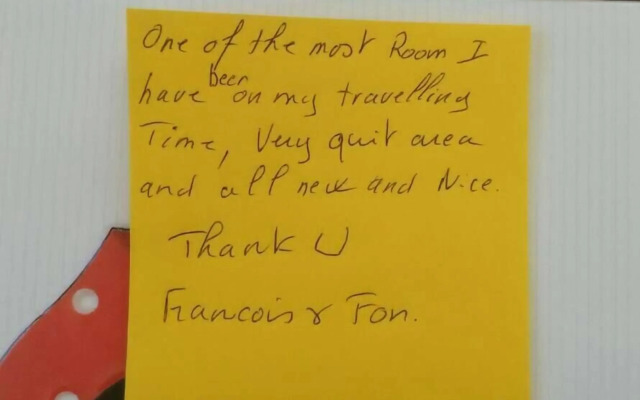 One of the most Room I
have been on my travelling
Time, Very quit area
and all new and Nice.
Thank U
Francois & Fon.